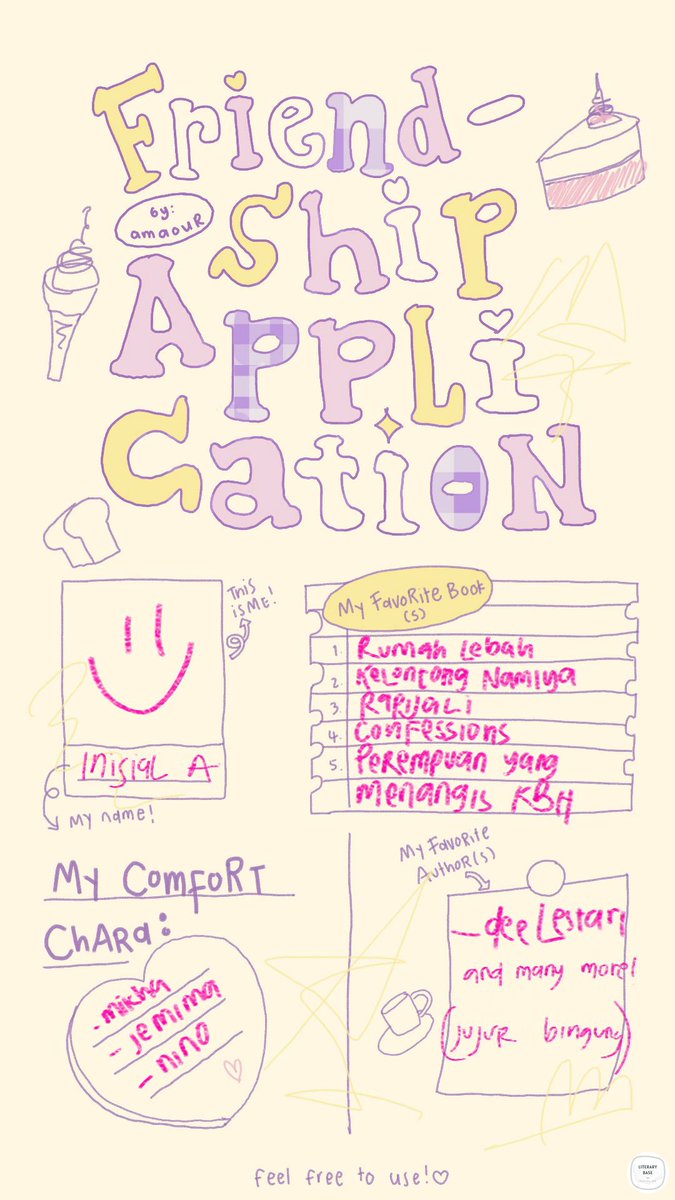 Friend-
by:
amaouR
Ship
Appli
Cation
This
is ME!
Inisial A
My name!
My Favorite Book
(s)
1. Rumah Lebah
2. Kelontong Namiya
3. Rapijali
4. Confessions
5. Perempuan yang
menangis KBH
My Comfort
Chara:
- mikha
- jemima
- nino
My Favorite
Author(s)
- dee Lestari
and many more!
(jujur bingung)
feel free to use!
LITERARY
BASE